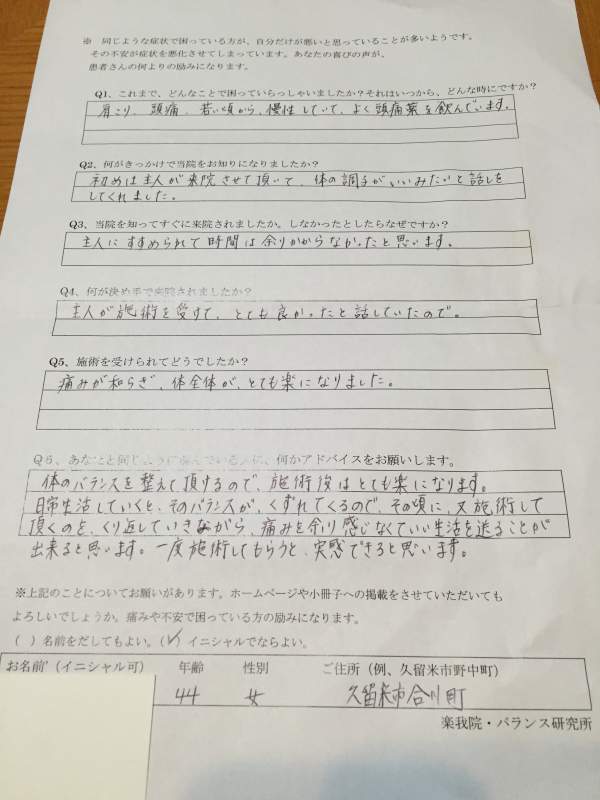 ※　同じような症状で困っている方が、自分だけが悪いと思っていることが多いようです。
その不安が症状を悪化させてしまっています。あなたの喜びの声が、
患者さんの何よりの励みになります。
Q1、これまで、どんなことで困っていらっしゃいましたか？それはいつから、どんな時にですか？
肩こり、頭痛、若い頃から、慢性していて、よく頭痛薬を飲んでいます。
Q2、何がきっかけで当院をお知りになりましたか？
初めは主人が来院させて頂いて、体の調子がいいみたいと話しを
してくれました。
Q3、当院を知ってすぐに来院されましたか。しなかったとしたらなぜですか？
主人にすすめられて時間は余りかからなかったと思います。
Q4、何が決め手で来院されましたか？
主人が施術を受けて、とても良かったと話していたので。
Q5、施術を受けられてどうでしたか？
痛みが和らぎ、体全体が、とても楽になりました。
Q6、あなたと同じように悩んでいる人に、何かアドバイスをお願いします。
体のバランスを整えて頂けるので、施術後はとても楽になります。
日常生活していくと、そのバランスが、くずれてくるので、その頃に、又施術して
頂くのを、くり返していきながら、痛みを余り感じなくていい生活を送ることが
出来ると思います。一度施術してもらうと、実感できると思います。
※上記のことについてお願いがあります。ホームページや小冊子への掲載をさせていただいても
よろしいでしょうか。痛みや不安で困っている方の励みになります。
(　) 名前をだしてもよい。(✓) イニシャルでならよい。
お名前（イニシャル可）　年齢　性別　ご住所（例、久留米市野中町）
44　女　久留米市合川町
楽我院・バランス研究所